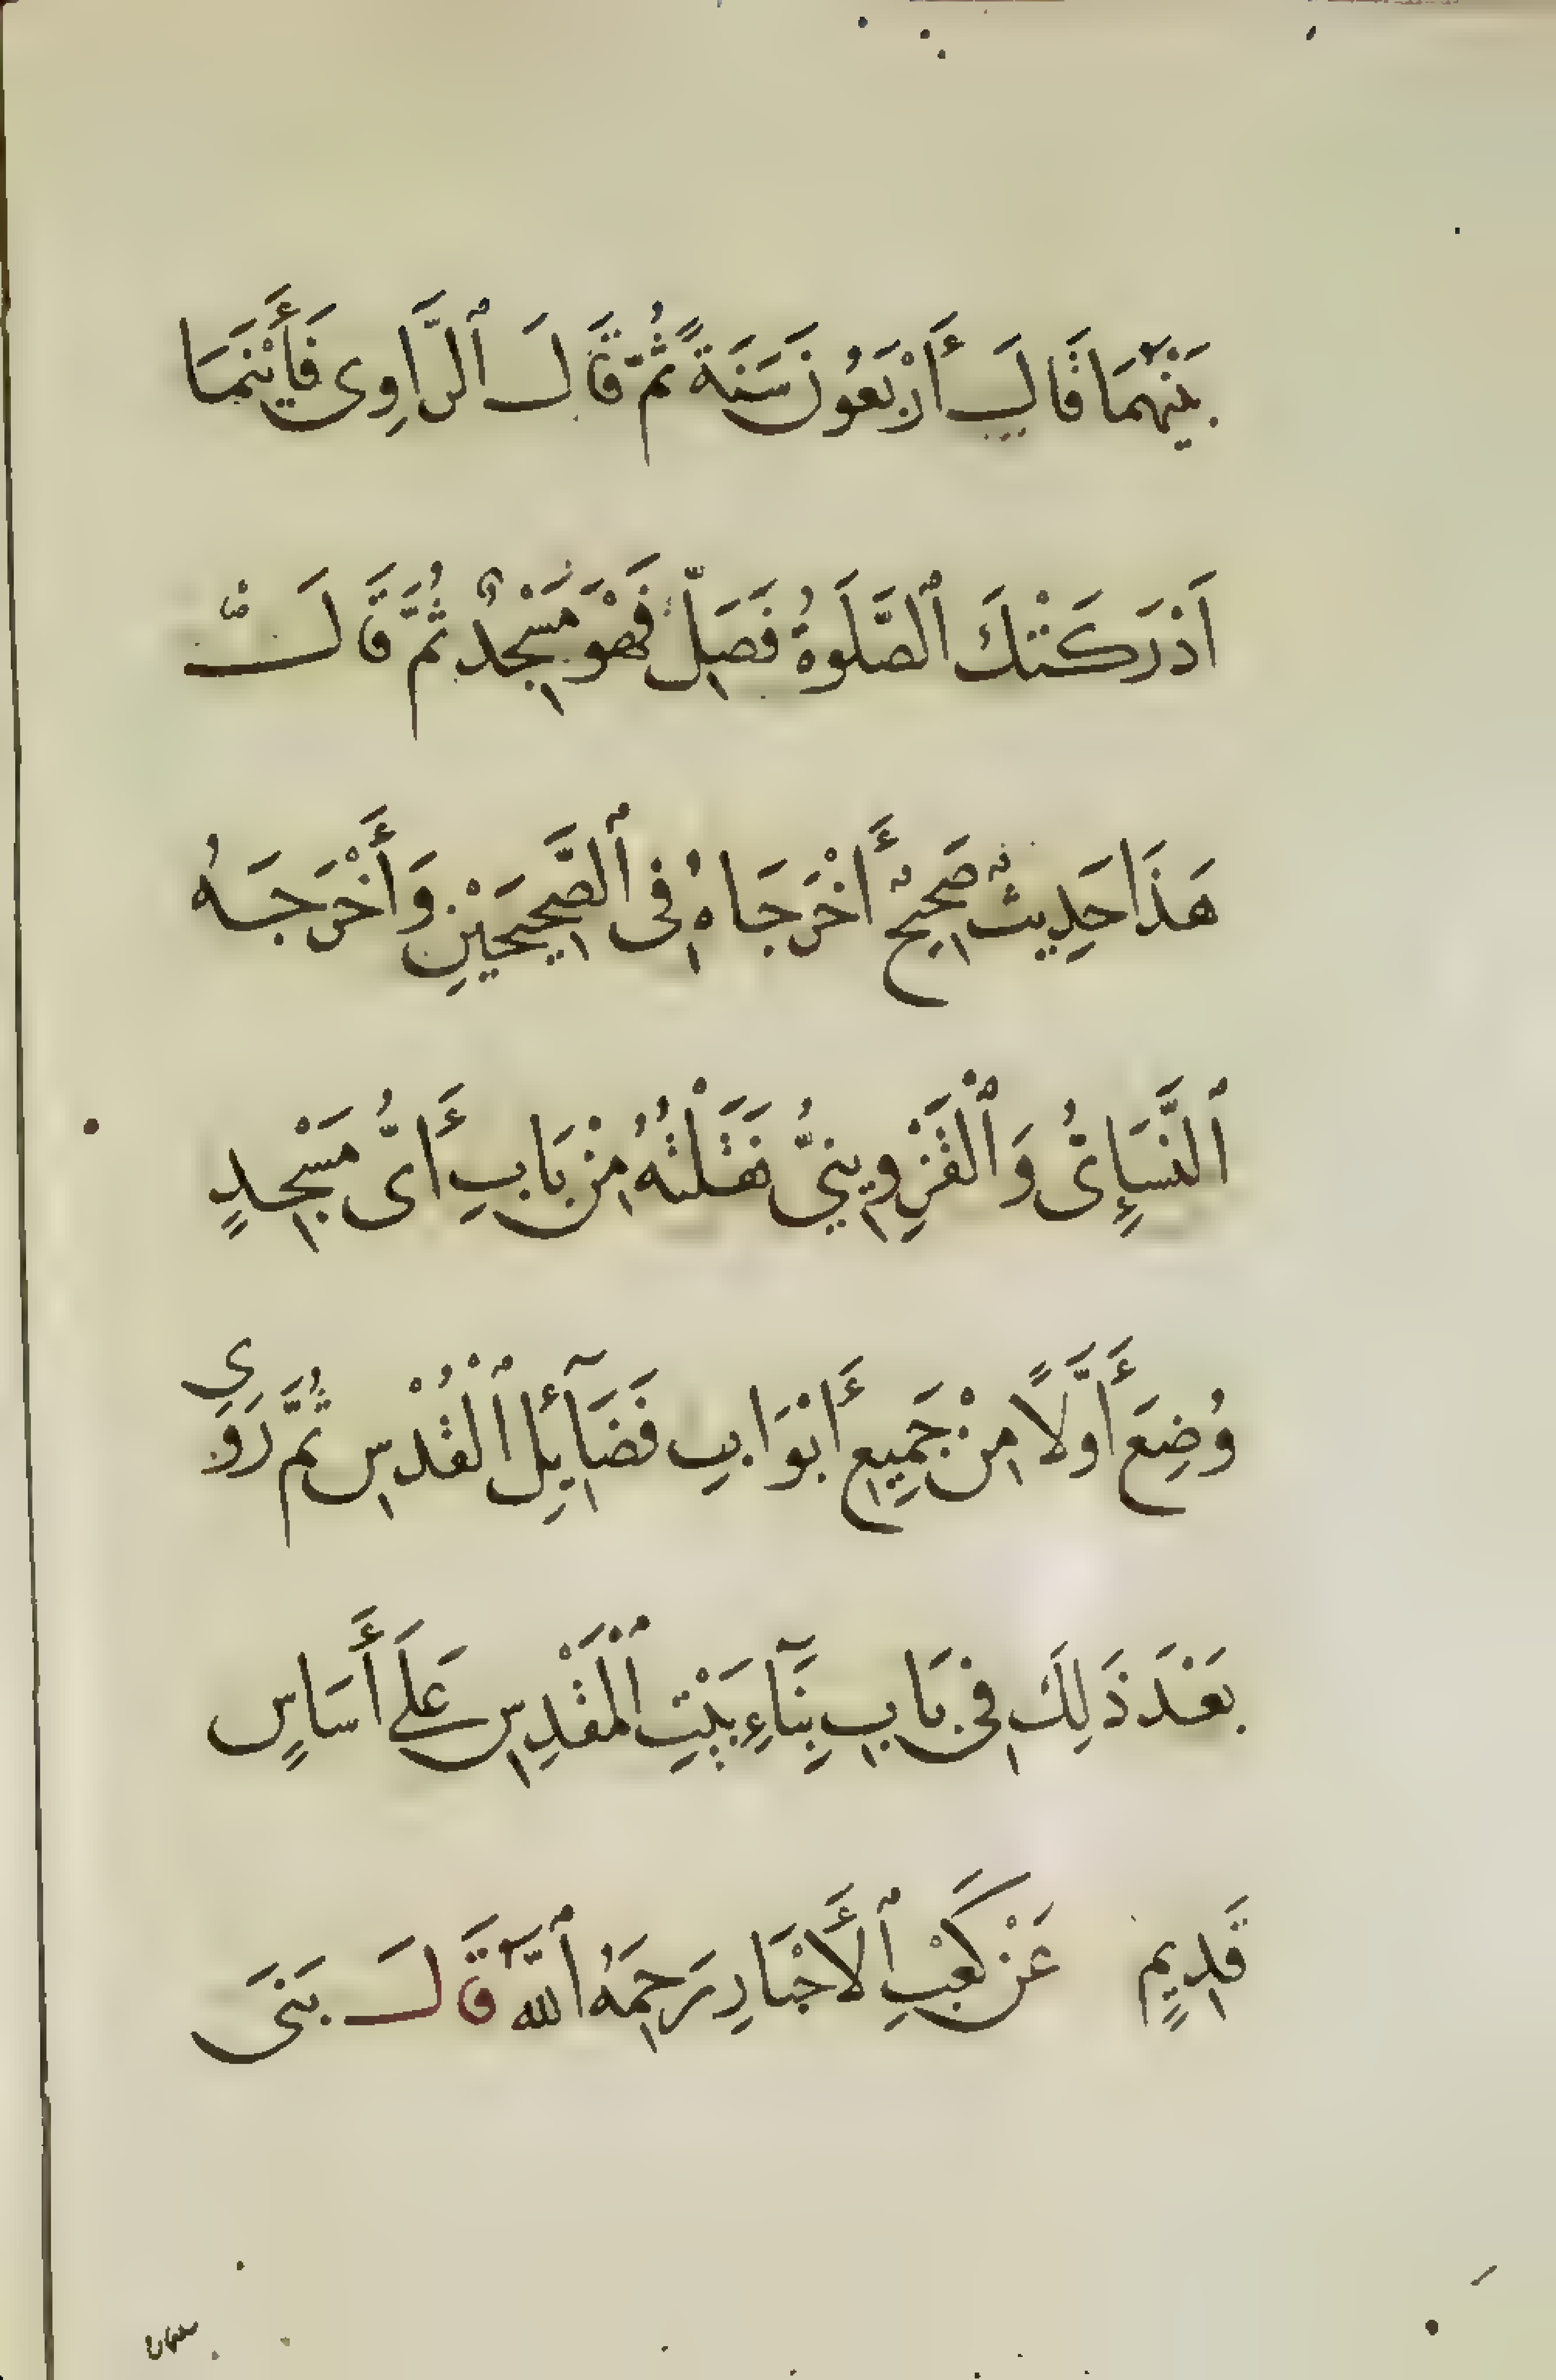 بَيْنَهُمَا قَالَ أَرْبَعُونَ سَنَةً ثُمَّ قَالَ ٱلرَّاوِى فَأَيْنَمَا
اَدْرَكَتْكَ ٱلصَّلَوةُ فَصَلِّ فَهْوَ مَسْجِدٌ ثُمَّ قَالَ
هَذَا حَدِيثٌ صَحِيحٌ أَخْرَجَاهُ فِى ٱلصَّحِيحَيْنِ وَأَخْرَجَهُ
ٱلنَّسَاِئىُّ وَٱلْقَزْوِينِىُّ نَقَلْتُهُ مِنْ بَابِ أَىُّ مَسْجِدٍ
وُضِعَ أَوَّلًا مِنْ جَمِيعِ أَبْوَابِ فَضَآئِلِ ٱلْقُدْسِ ثُمَّ رَوَي
بَعْدَ ذَلِكَ فِى بَابِ بِنَآءِ بَيْتِ ٱلْمَقْدِسِ عَلَى أَسَاسٍ
قَدِيمٍ عَنْ كَعْبِ ٱلْأَحْبَارِ رَحِمَهُ ٱللَّهُ قَالَ بَنَى
سليمان